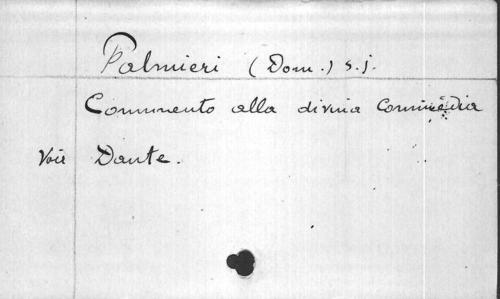 Palmieri (Dom.) s.j.
Commento alla divina Commédia
Voir Dante.